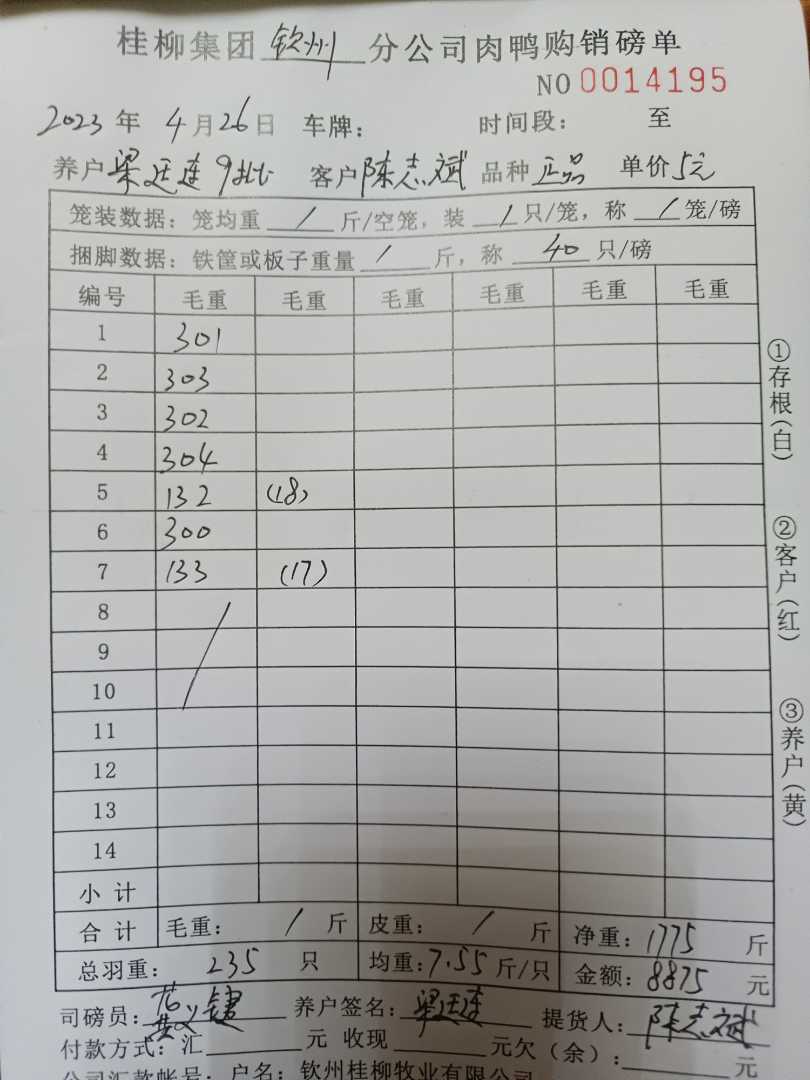 桂柳集团 钦州 分公司肉鸭购销磅单
NO 0014195
2023 年 4 月 26 日 车牌： 时间段： 至
养户 梁廷连 9批 客户 陈志斌 品种 正品 单价 5元
笼装数据：笼均重 / 斤/空笼，装 / 只/笼，称 / 笼/磅
捆脚数据：铁筐或板子重量 / 斤，称 40 只/磅
编号 毛重 毛重 毛重 毛重 毛重 毛重
1 301
2 303
3 302
4 304
5 132 (18)
6 300
7 133 (17)
8 /
9
10
11
12
13
14
小计
合计 毛重： / 斤 皮重： / 斤 净重：1775 斤
总羽重： 235 只 均重：7.55 斤/只 金额：8875 元
司磅员： 养户签名：梁廷连 提货人：陈志斌
付款方式：汇 元 收现 元欠（余）： 元
公司汇款帐号：户名：钦州桂柳牧业有限公司
①存根(白)
②客户(红)
③养户(黄)